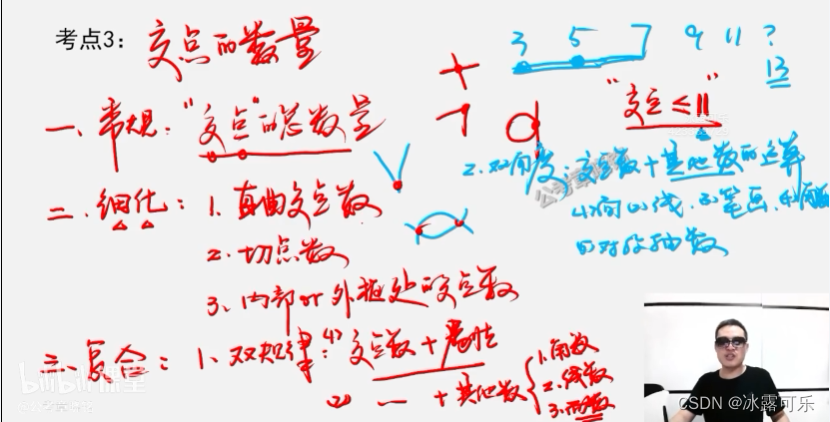 考点3：交点的数量
3 5 7 9 11 ?
13
一、常规："交点"的总数量
"交点≤11"
二、细化：1.直曲交点数
2.切点数
3、内部or外框处的交点数
2.对角度；交点数+其他数的运算
(1)面(2)线、(3)笔画、(4)角数
(5)对称轴数
三、复合：1、双规律：(1)交点数+属性
(2) 一 +其他数
1.角数
2.线数
3.面数
bilibili课堂
CSDN @冰露可乐